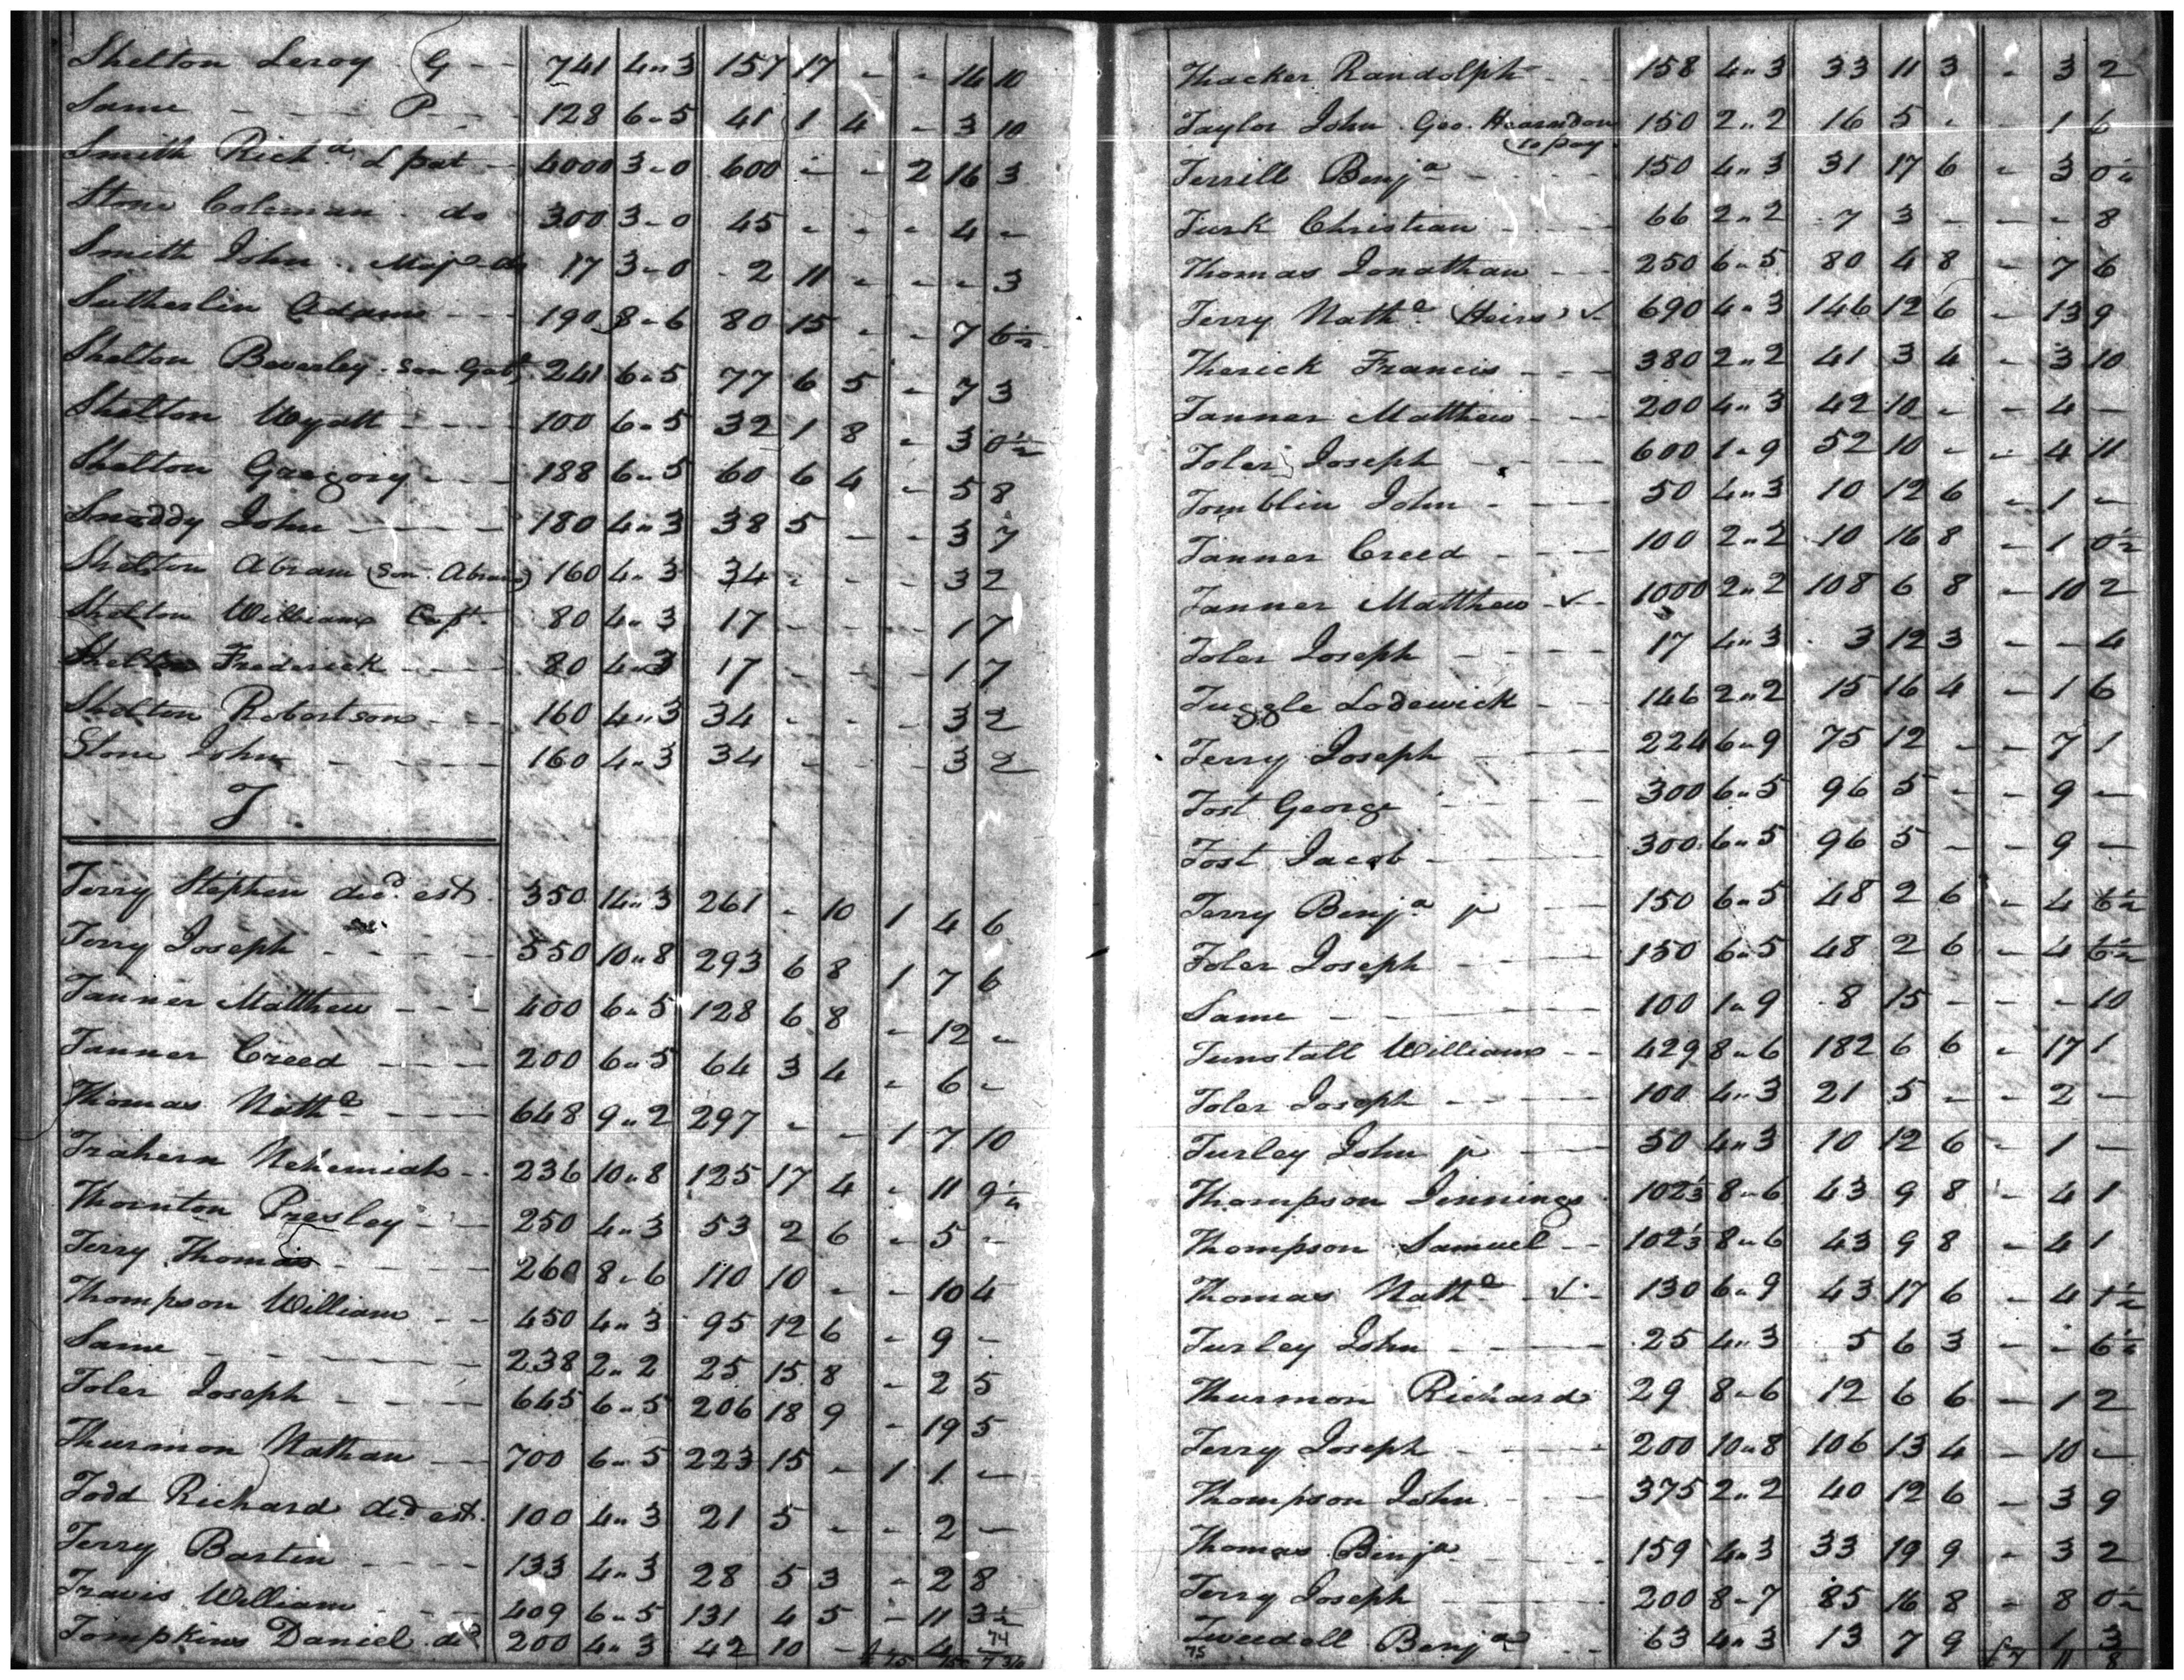 Shelton Leroy G 741 4"3 157 17 - - 14 10
Same P 128 6"5 41 1 4 - 3 10
Smith Richd L pat 4000 3"0 600 - - 2 16 3
Stone Coleman do 300 3"0 45 - - - 4 -
Smith John Majr do 17 3"0 2 11 - - - 3
Sutherlin Adams 190 8"6 80 15 - - 7 6½
Shelton Beverley Son Gabl 241 6"5 77 6 5 - 7 3
Shelton Wyatt 100 6"5 32 1 8 - 3 0½
Shelton Gregory 188 6"5 60 6 4 - 5 8
Snoddy John 180 4"3 38 5 - - 3 7
Shelton Abram (Son Abram) 160 4"3 34 - - - 3 2
Shelton William Capt. 80 4"3 17 - - - 1 7
Shelton Frederick 80 4"3 17 - - - 1 7
Shelton Robertson 160 4"3 34 - - - 3 2
Stone John 160 4"3 34 - - - 3 2
T.
Terry Stephen decd est. 350 14"3 261 - 10 1 4 6
Terry Joseph 550 10"8 293 6 8 1 7 6
Tanner Matthew 400 6"5 128 6 8 - 12 -
Tanner Creed 200 6"5 64 3 4 - 6 -
Thomas Nathl 648 9"2 297 - - 1 7 10
Trahern Nehemiah 236 10"8 125 17 4 - 11 9½
Thornton Presley 250 4"3 53 2 6 - 5 -
Terry Thomas 260 8"6 110 10 - - 10 4
Thompson William 450 4"3 95 12 6 - 9 -
Same 238 2"2 25 15 8 - 2 5
Toler Joseph 645 6"5 206 18 9 - 19 5
Thurmon Nathan 700 6"5 223 15 - 1 1 -
Todd Richard decd est. 100 4"3 21 5 - - 2 -
Terry Barten 133 4"3 28 5 3 - 2 8
Travis William 409 6"5 131 4 5 - 11 3½
Tompkins Daniel decd 200 4"3 42 10 - 4
74
Thacker Randolph 158 4"3 33 11 3 - 3 2
Taylor John Geo. Hearndon 150 2"2 16 5 - 1 6
(to pay
Terrill Benja 150 4"3 31 17 6 - 3 0½
Turk Christian 66 2"2 7 3 - - - 8
Thomas Jonathan 250 6"5 80 4 8 - 7 6
Terry Nathl (Heirs) ✓ 690 4"3 146 12 6 - 13 9
Therick Francis 380 2"2 41 3 4 - 3 10
Tanner Matthew 200 4"3 42 10 - - 4 -
Toler Joseph 600 1"9 52 10 - - 4 11
Tomblin John 50 4"3 10 12 6 - 1 -
Tanner Creed 100 2"2 10 16 8 - 1 0½
Tanner Matthew ✓ 1000 2"2 108 6 8 - 10 2
Toler Joseph 17 4"3 3 12 3 - - 4
Tuggle Lodewick 146 2"2 15 16 4 - 1 6
Terry Joseph 224 6"9 75 12 - - 7 1
Tost George 300 6"5 96 5 - - 9 -
Tost Jacob 300 6"5 96 5 - - 9 -
Terry Benja p 150 6"5 48 2 6 - 4 6½
Toler Joseph 150 6"5 48 2 6 - 4 6½
Same 100 1"9 8 15 - - - 10
Tunstall William 429 8"6 182 6 6 - 17 1
Toler Joseph 100 4"3 21 5 - - 2 -
Turley John p 50 4"3 10 12 6 - 1 -
Thompson Jennings 102⅓ 8"6 43 9 8 - 4 1
Thompson Samuel 102⅓ 8"6 43 9 8 - 4 1
Thomas Nathl ✓ 130 6"9 43 17 6 - 4 1½
Turley John 25 4"3 5 6 3 - - 6½
Thurmon Richard 29 8"6 12 6 6 - 1 2
Terry Joseph 200 10"8 106 13 4 - 10 -
Thompson John 375 2"2 40 12 6 - 3 9
Thomas Benja 159 4"3 33 19 9 - 3 2
Terry Joseph 200 8"7 85 16 8 - 8 0½
Tweedell Benja 63 4"3 13 7 9 1 3
75